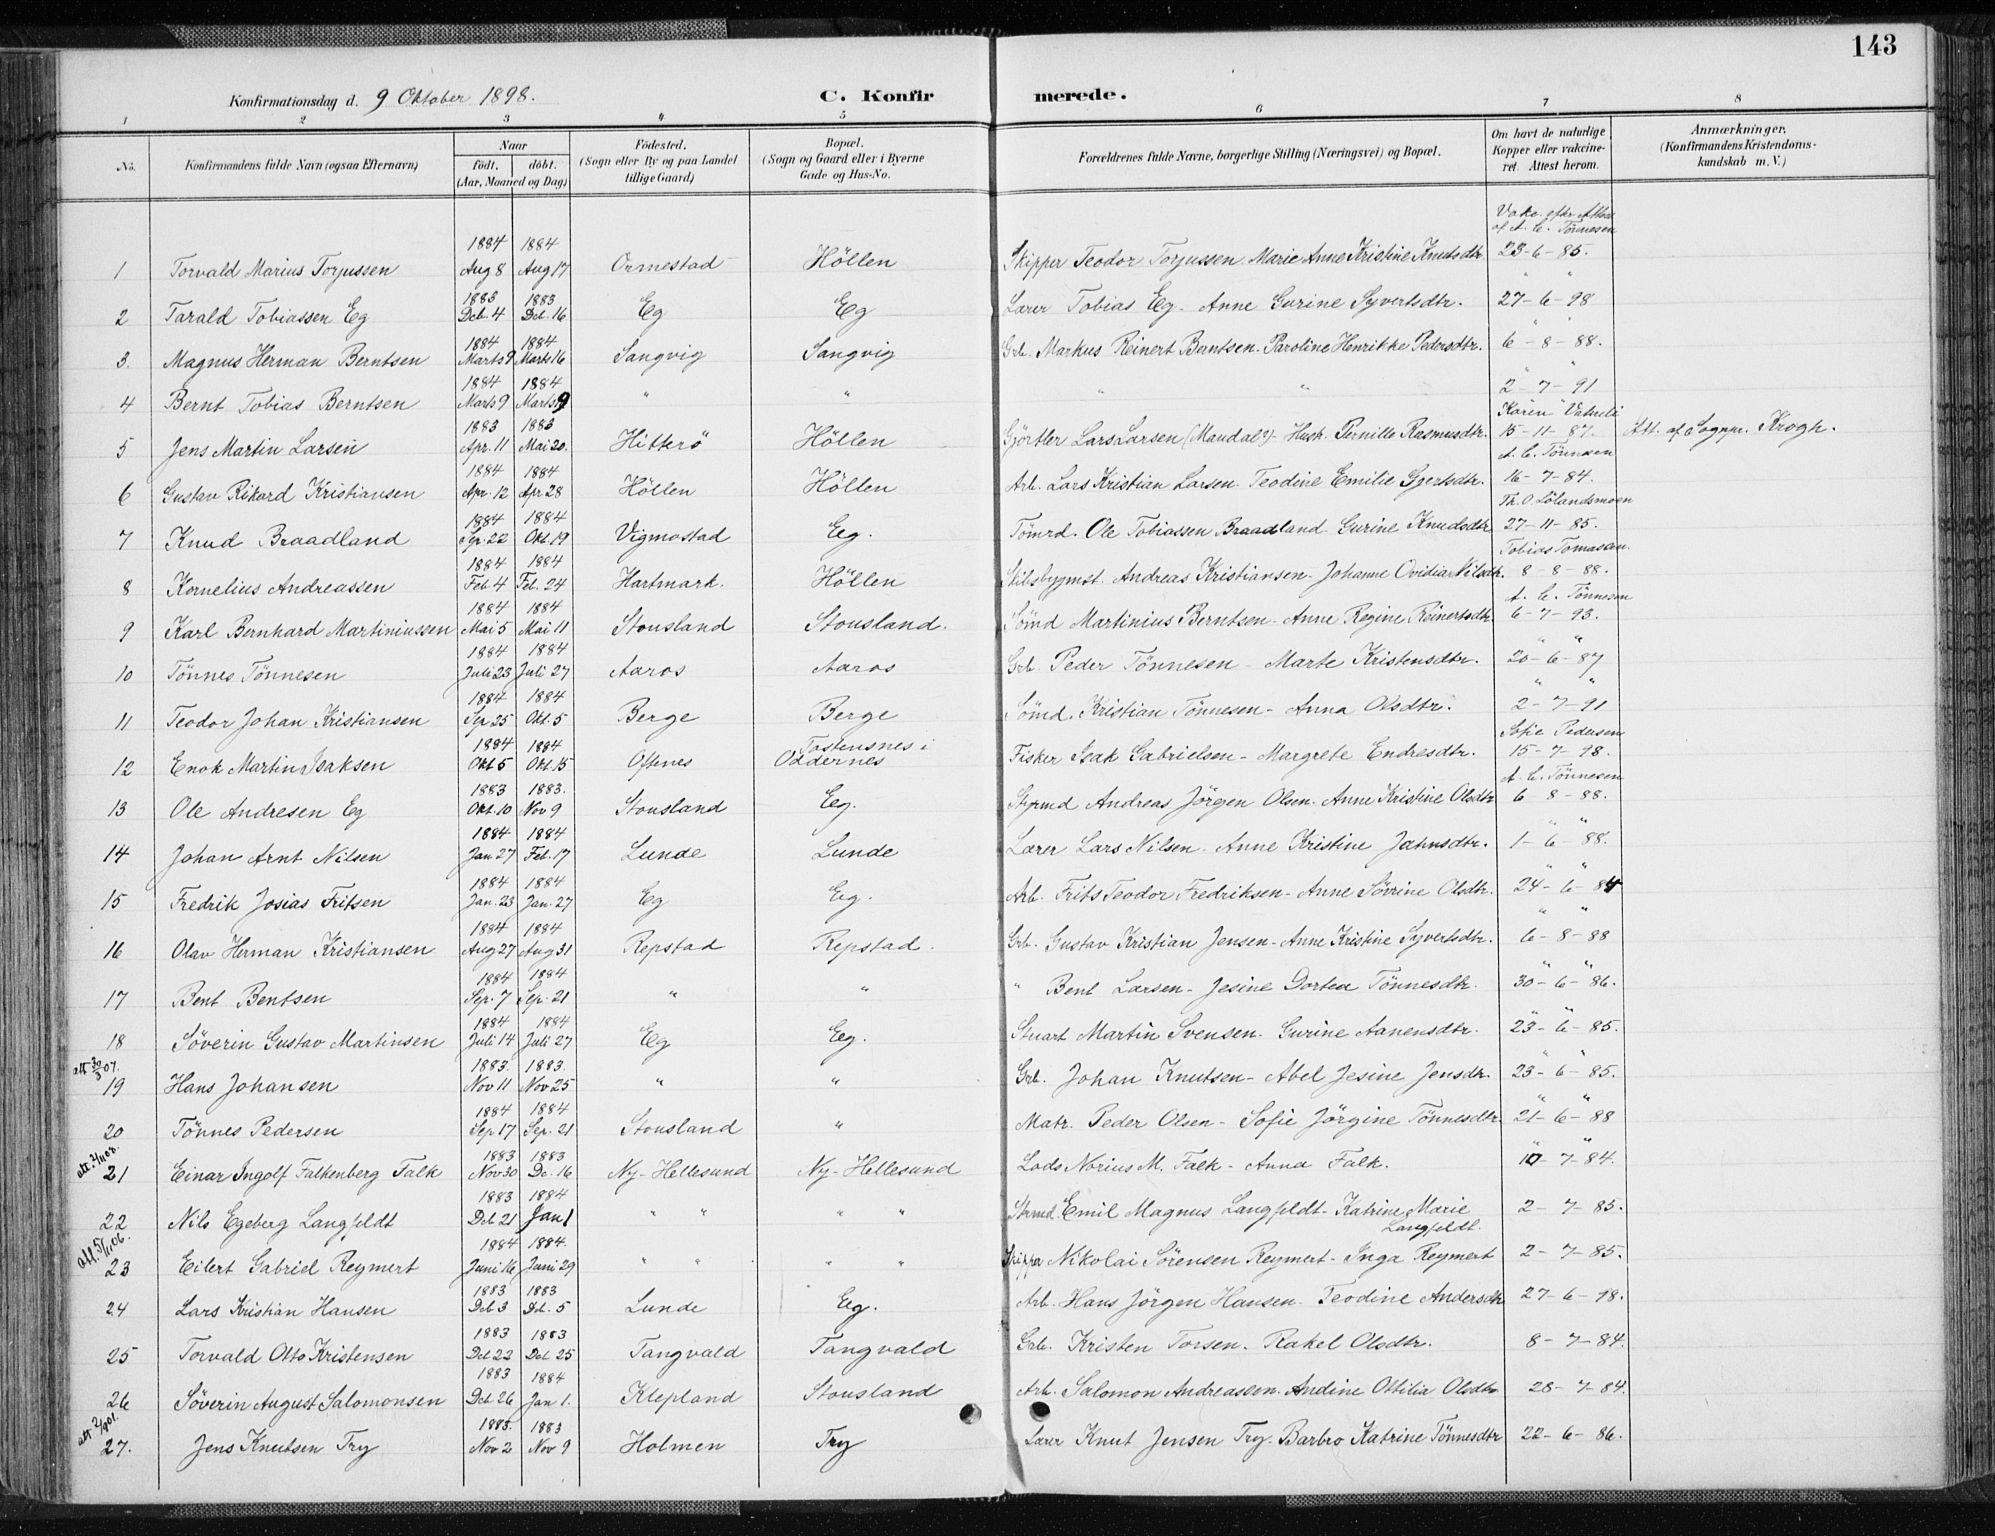 143
Konfirmationsdag d. 9 Oktober 1898. C. Konfirmerede.
1 2 3 4 5 6 7 8
No. Konfirmandens fulde Navn (ogsaa Efternavn) Naar født. døbt. (Aar, Maaned og Dag) Fødested. (Sogn eller By og paa Landet tillige Gaard) Bopæl. (Sogn og Gaard eller i Byerne Gade og Hus-No. Forældrenes fulde Navne, borgerlige Stilling (Næringsvei) og Bopæl. Om havt de naturlige Kopper eller vakcineret. Attest herom. Anmærkninger. (Konfirmandens Kristendomskundskab m. V.)
1 Torvald Marius Torjussen 1884 Aug 8 1884 Aug 17 Ormestad Höllen Skipper Teodor Torjussen. Marie Anne Kristine Knutsdtr. af A. C. Tönnesen 23-6-85.
2 Tarald Tobiassen Eg 1883 Dcb. 4 1883 Dcb. 16 Eg Eg Lærer Tobias Eg - Anne Gurine Syvertsdtr. " " 27-6-98
3. Magnus Herman Berntsen 1884 Marts 9 1884 Marts 16 Sangvig Sangvig Grb. Markus Reinert Berntsen. Paroline Henrikke Pedersdtr. " " 6-8-88.
4 Bernt Tobias Berntsen 1884 Marts 9 1884 Marts 9 " " " " " " 2-7-91
5 Jens Martin Larsen 1883 Apr. 11 1883 Mai 20. Hitterö Höllen Gjörtler Lars Larsen (Mandal?) - Husk. Pernille Rasmusdtr. Karen Vatneli 15-11-87. Att. af Sognpr. Krogh.
6 Gustav Rikard Kristiansen 1884 Apr. 12 1884 Apr 28 Höllen Höllen Arb. Lars Kristian Larsen - Teodine Emilie Gjertsdtr. A. C. Tönnesen 16-7-84.
7 Knud Braadland 1884 Sp. 22 1884 Okt. 19 Vigmostad Eg. Tömrd. Ole Tobiassen Braadland. Gurine Knudsdtr. Th. O. Lölandsmoen 27-11-85.
8 Kornelius Andreassen 1884 Feb 4 1884 Feb. 24 Hartmark. Höllen Skibsbygmst. Andreas Kristiansen - Johanne Ovidia Nilsdtr. Tobias Tomassen. 8-8-88.
9 Karl Bernhard Martiniussen 1884 Mai 5 1884 Mai 11 Stousland Stousland. Sömd Martinius Berntsen - Anne Regine Reinertsdtr. A. C. Tönnesen 6-7-93.
10 Tönnes Tönnesen 1884 Juli 23 1884 Juli 27 Aaros Aaros Grb. Peder Tönnesen - Marte Kristensdtr. " " 20-6-87
11 Teodor Johan Kristiansen 1884 Sep 25 1884 Okt. 5 Berge Berge Sömd. Kristian Tönnesen - Anna Olsdtr. " " 2-7-91
12 Enok Martin Isaksen 1884 Okt 5 1884 Okt. 15 Oftenes Tostensnes i Oddernes Fisker Isak Gabrielsen - Margrete Endresdtr. Sofie Pedersen 15-7-98.
13 Ole Andresen Eg 1883 Okt. 10 1883. Nov 9 Stousland Eg. Styrmd Andreas Jörgen Olsen. Anne Kristine Olsdtr A. C. Tönnesen 6-8-88.
14 Johan Arnt Nilsen 1884 Jan 27 1884 Feb. 17 Lunde Lunde Lærer Lars Nilsen. Anne Kristine Jahnsdtr. " " 1-6-88.
15 Fredrik Josias Fritsen 1884 Jan. 23 1884 Jan. 27 Eg Eg. Arb. Frits Teodor Fredriksen - Anne Sövrine Olsdtr. " " 24-6-84
16 Olav Herman Kristiansen 1884 Aug 27 1884 Aug 31 Repstad Repstad. Grb. Gustav Kristian Jensen - Anne Kristine Syvertsdtr. " " 6-8-88
17 Bent Bentsen 1884 Sep. 7 1884 Sep. 21 " " " Bent Larsen - Jesine Dortea Tönnesdtr. " " 30-6-86.
18 Söverin Gustav Martinsen 1884 Juli 14 1884 Juli 27 Eg Eg. Stuart Martin Svensen - Gurine Aanensdtr. " " 23-6-85.
att 30/3 07.
19 Hans Johansen 1883. Nov 11 1883. Nov 25 " " Grb. Johan Knutsen - Abel Jesine Jensdtr. " " 23-6-85.
20 Tönnes Pedersen 1884 Sep 17 1884 Sep. 21 Stousland " Matr. Peder Olsen - Sofie Jörgine Tönnesdtr. " " 21-6-88
21 Einar Ingolf Falkenberg Falk 1883 Nov 30 1883 Dc. 16 Ny-Hellesund Ny-Hellesund Lods Norius M. Falk - Anna Falk. " " 10-7-84.
22 Nils Egeberg Langfeldt 1883 Dcb 21 1884 Jan 1 " " " " Emil Magnus Langfeldt - Katrine Marie Langfeldt. 2-7-85.
23 Eilert Gabriel Reymert 1884 Juni 16 1884. Juni 29 " " " " Skipper Nikolai Sörensen Reymert - Inga Reymert 2-7-85.
24 Lars Kristian Hansen 1883 Dcb 3 1883 Dcb. 5 Lunde Eg. Arb. Hans Jörgen Hansen. Teodine Andersdtr 27-6-98.
25 Torvald Otto Kristensen 1883 Dcb 22 1883 Dcb 25 Tangvald Tangvald Grb. Kristen Torsen. Rakel Olsdtr. 8-7-84.
26 Söverin August Salomonsen 1883 Dcb 26 1884 Jan 1. Klepland Stousland Arb. Salomon Andreassen. Andine Ottilia Olsdtr 28-7-84.
27. Jens Knutsen Try 1883. Nov 2 1883 Nov 9 Holmen Try Lærer Knut Jensen Try. Barbro Katrine Tönnesdtr 22-6-86.